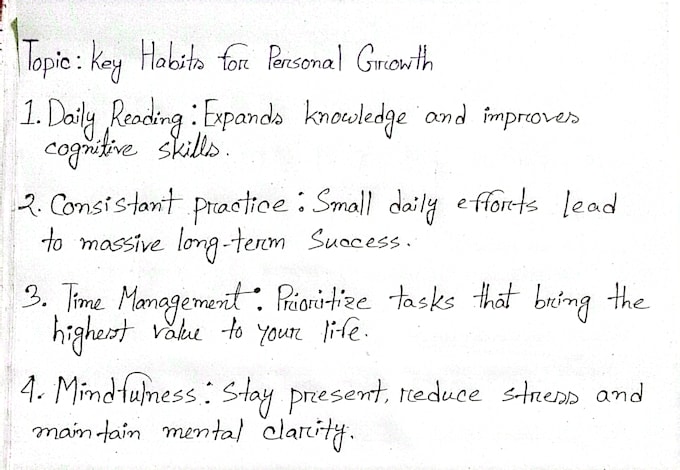 Topic: Key Habits for Personal Growth
1. Daily Reading: Expands knowledge and improves
cognitive skills.
2. Consistant practice: Small daily efforts lead
to massive long-term Success.
3. Time Management: Prioritize tasks that bring the
highest value to your life.
4. Mindfulness: Stay present, reduce stress and
maintain mental clarity.